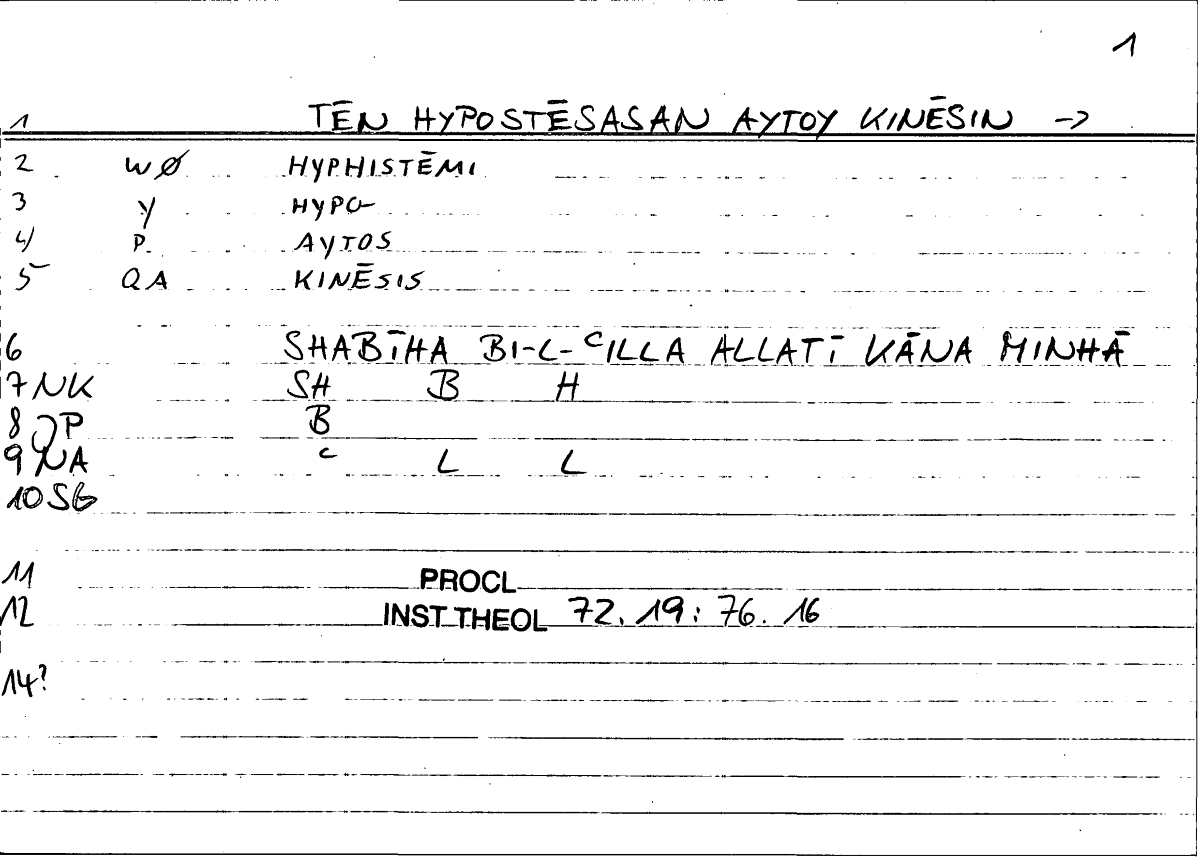 1
1 TĒN HYPOSTĒSASAN AYTOY KINĒSIN ->
2 WØ HYPHISTĒMI
3 Y HYPO-
4 P. AYTOS
5 QA KINĒSIS
6 SHABĪHA BI-L-ᶜILLA ALLATĪ KĀNA MINHĀ
7 NK SH B H
8 JP B
9 NA ᶜ L L
10 SG
11 PROCL
12 INST.THEOL 72.19: 76.16
14?